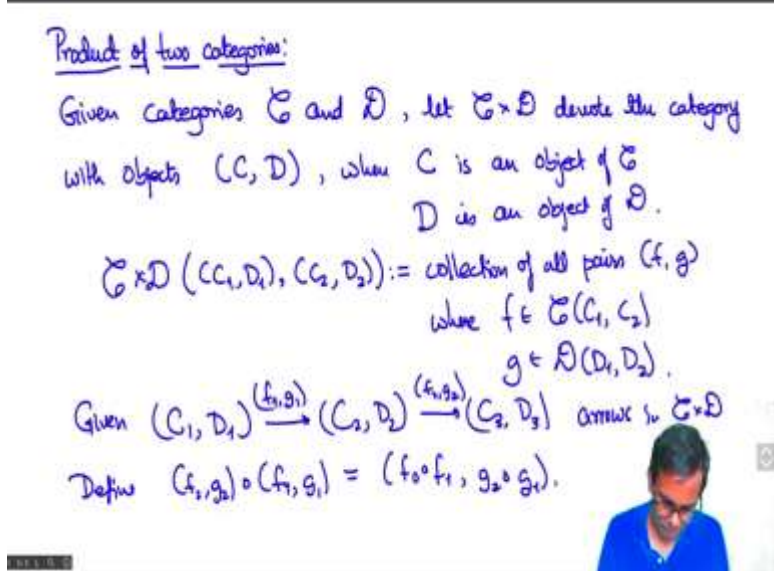 Product of two categories:
Given categories 𝒞 and 𝒟, let 𝒞×𝒟 denote the category
with objects (C, D), where C is an object of 𝒞
D is an object of 𝒟.
𝒞×𝒟 ((C₁, D₁), (C₂, D₂)) := collection of all pairs (f, g)
where f ∈ 𝒞(C₁, C₂)
g ∈ 𝒟(D₁, D₂).
Given (C₁, D₁) (f₁, g₁)→ (C₂, D₂) (f₂, g₂)→ (C₃, D₃) arrows in 𝒞×𝒟
Define (f₂, g₂) ∘ (f₁, g₁) = (f₂∘f₁, g₂∘g₁).